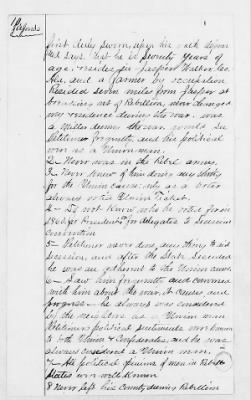 first duly sworn, upon his oath depose
and says, that he is Seventy years of
age, resides in Jasper Walker Co
Ala, and a farmer by occupation
Resided seven miles from Jasper at
breaking out of Rebellion, never changed
my residence during the war. was
a Miller during the war. would in
Petitioner frequently, and his political
was as a Union man.
2 - Never was in the Rebel army.
3 - Never knew of him doing anything
for the Union cause, only as a voter
always voted Union Ticket.
4 - Do not know who he voted for in
1860 for President for delegates to Secession
convention
5 - Petitioner never done any thing to aid
secession, and after the State Seceded
he was an adherent to the Union cause
6 - Saw him frequently and conversed
with him about the war, its causes and
progress - he always was considered
by the neighbors as Union man
Petitioners political sentiments were known
to both Union & Confederates, and he was
always considered a Union man.
7 - As political opinions of men in Rebel
States were well known
8 Never left his County during Rebellion